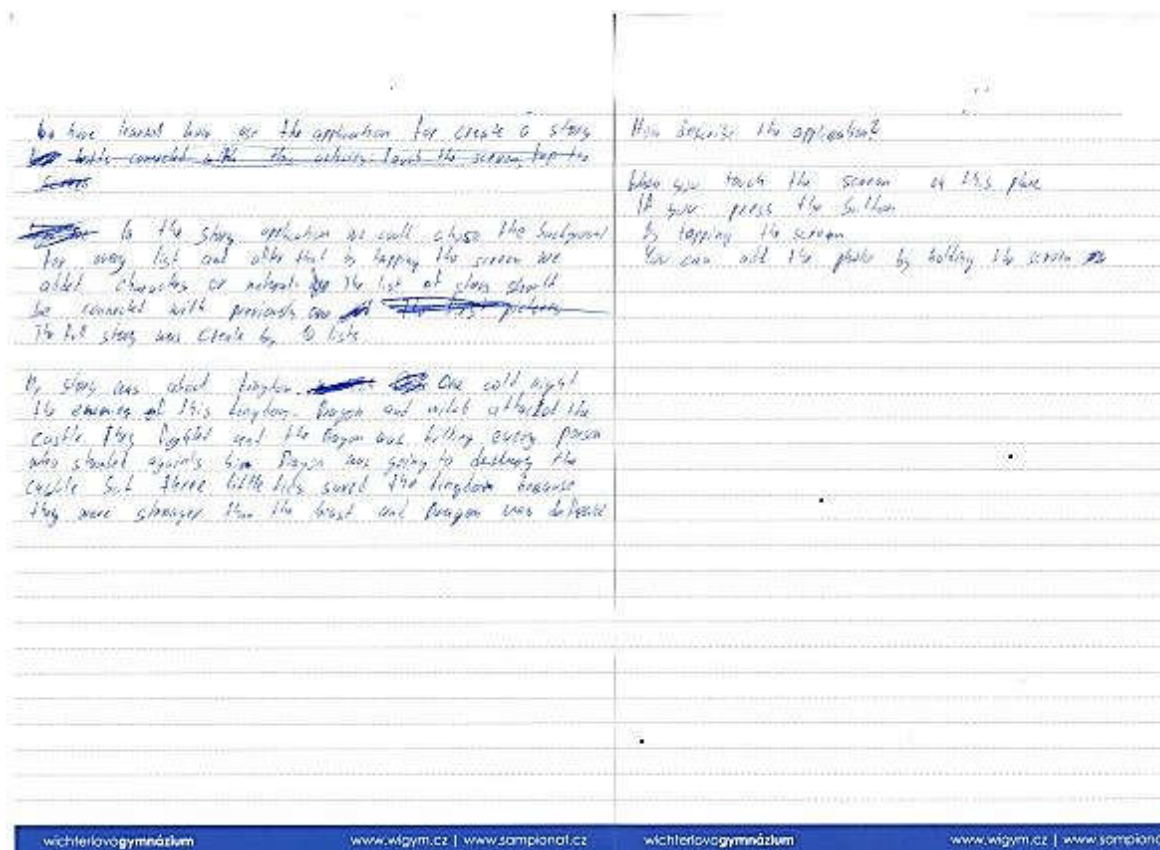 We have learned how use the application for create a story
with the activity touch the screen, tap the
screen
In the story application we could chose the background
for every list and after that by tapping the screen we
added characters or The list of story should
be connected with previously one
The full story was create by lists.
My story was about kingdom. One cold night
the enemies of this kingdom. Dragon and attacked the
castle. They and the Dragon was killing every person
who him. Dragon was going to destroy the
castle but three little kids saved the kingdom because
they were stronger than the and Dragon was
How describe the application?
When you touch the screen this place
If you press the button
By tapping the screen
You can add the photo by holding the screen
wichterlovogymnázium www.wigym.cz | www.sampionat.cz
wichterlovogymnázium www.wigym.cz | www.sampionat.c